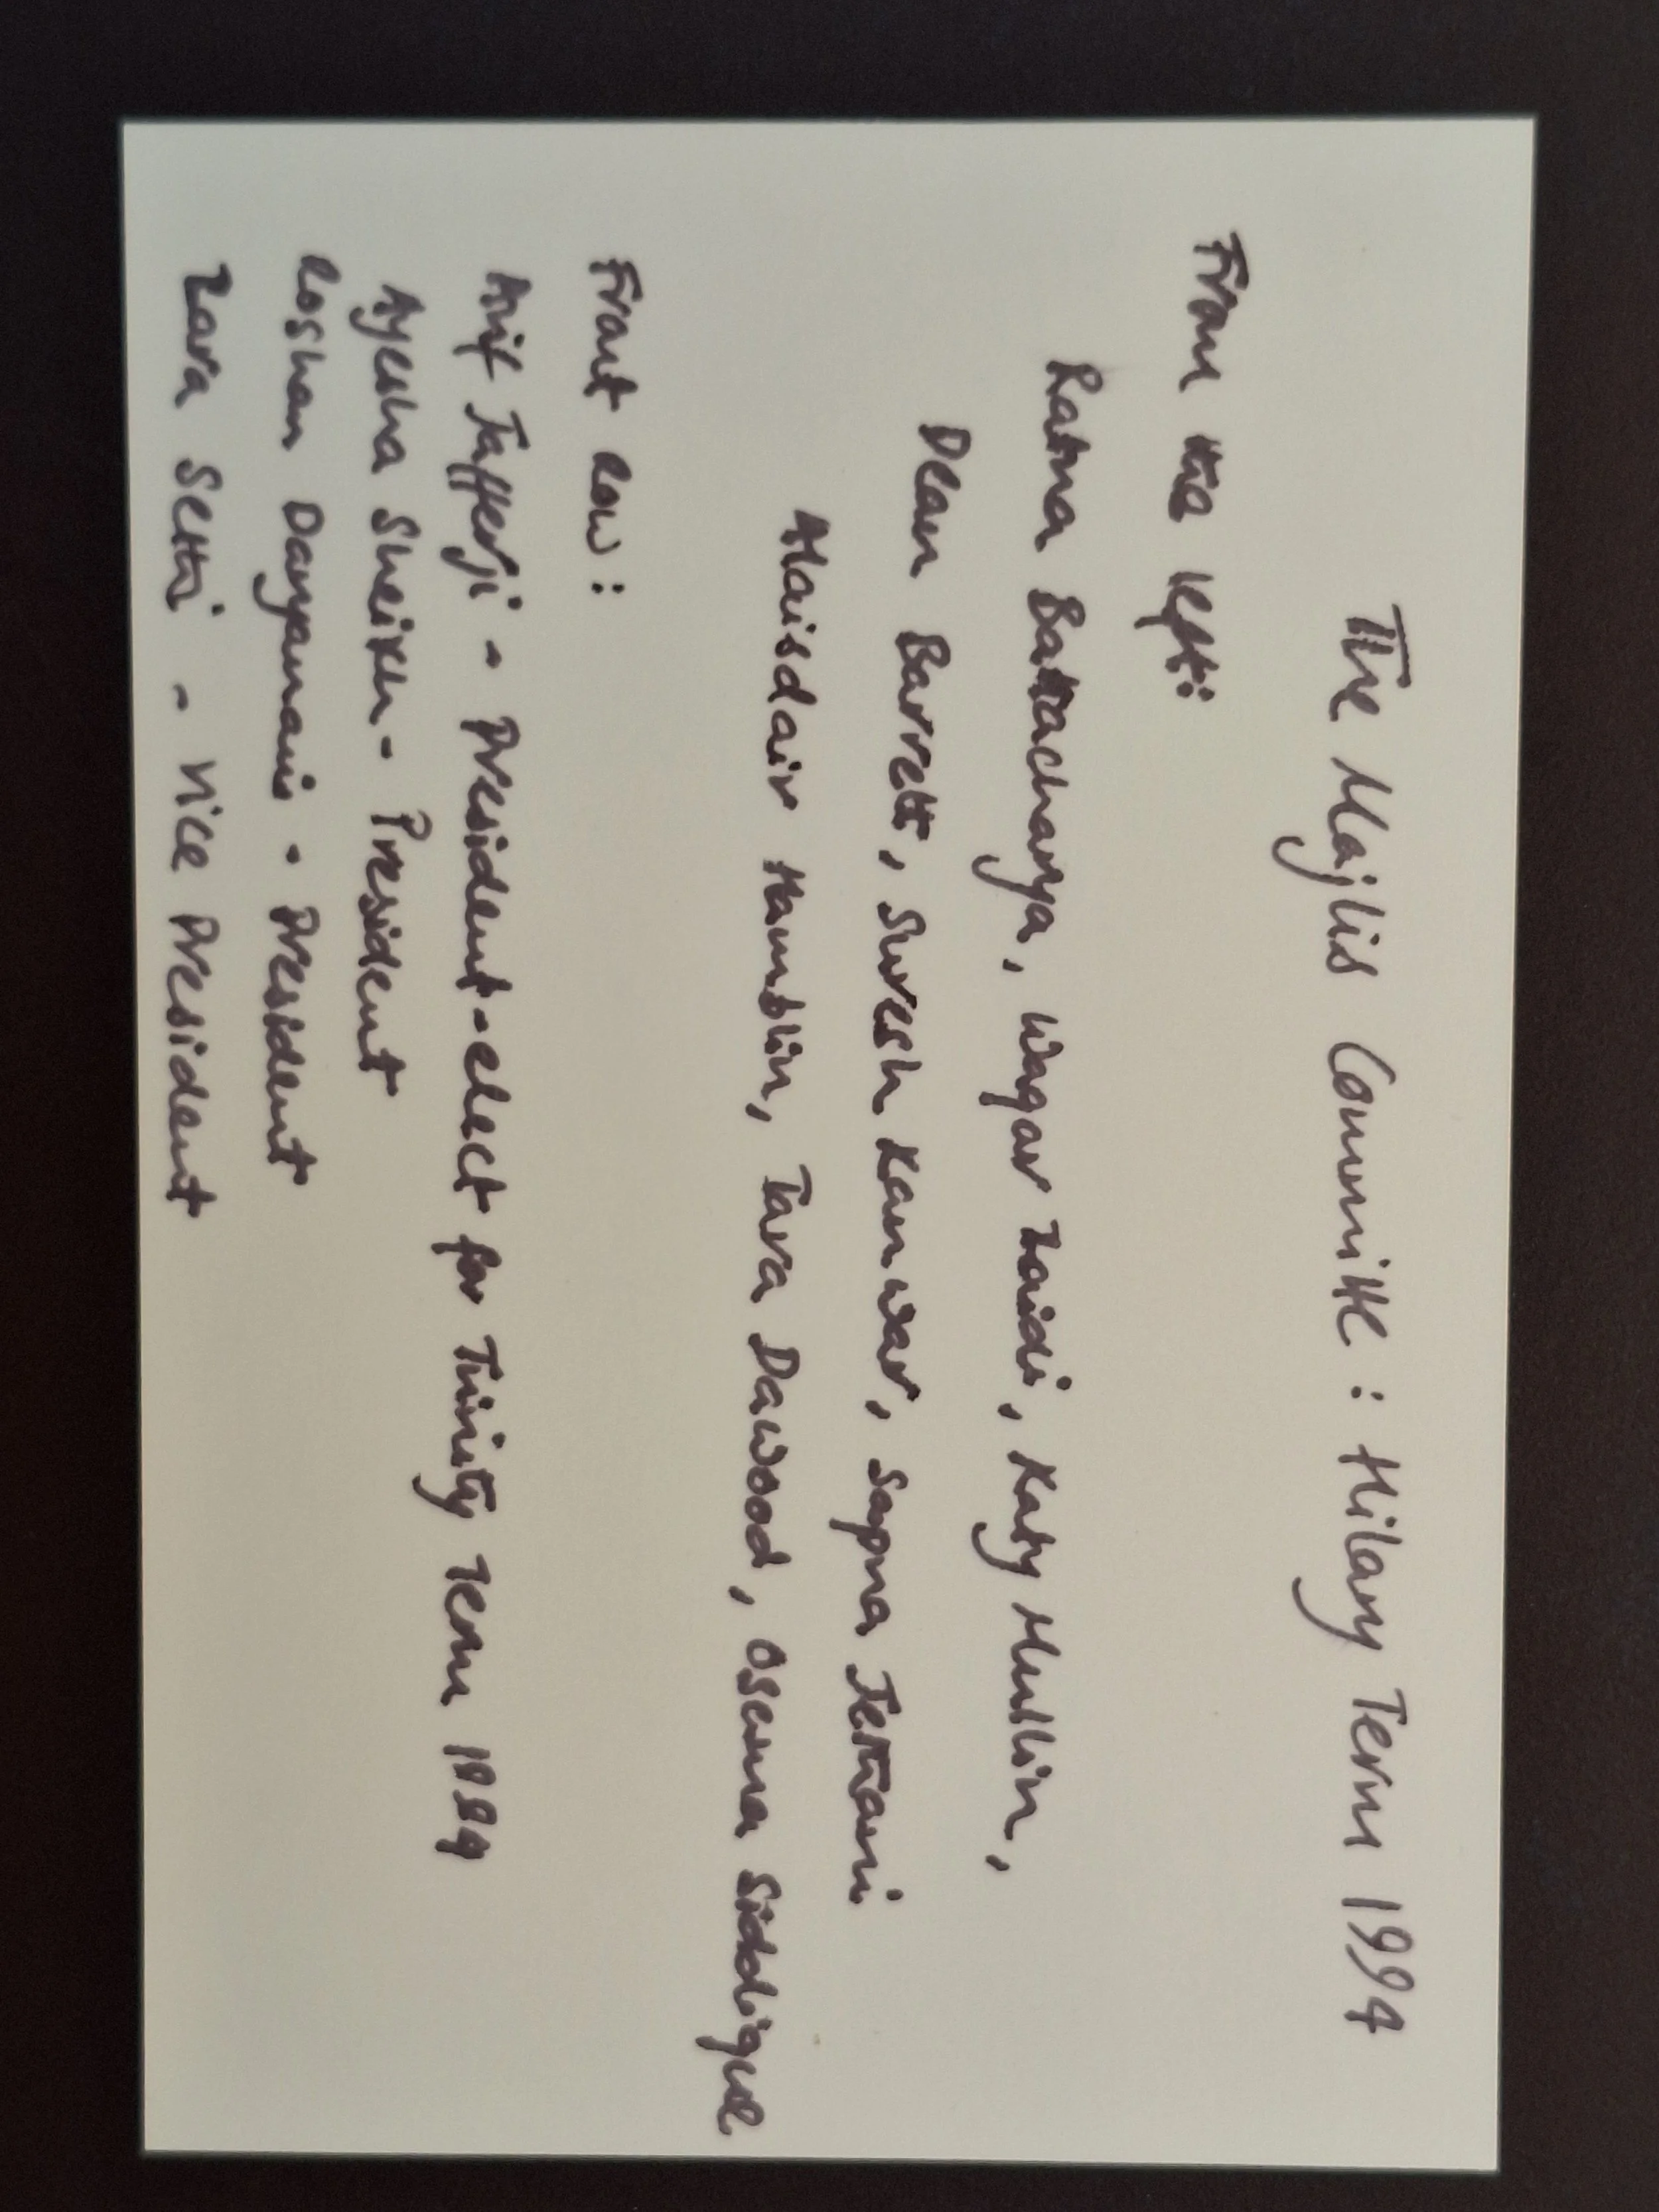 The Majlis Committe : Hilary Term 1994
From the left:
Ratna Battacharya, Waqar Zaidi, Katy Mullin,
Dean Barrett, Suresh Kanwar, Sapna Jethani
Alaisdair Hamblin, Tara Dawood, Osama Siddique
Front Row :
Arif Jafferji - President-elect for Trinity Term 1994
Ayesha Sheikh - President
Roshan Daryanani - President
Zara Sethi - Vice President